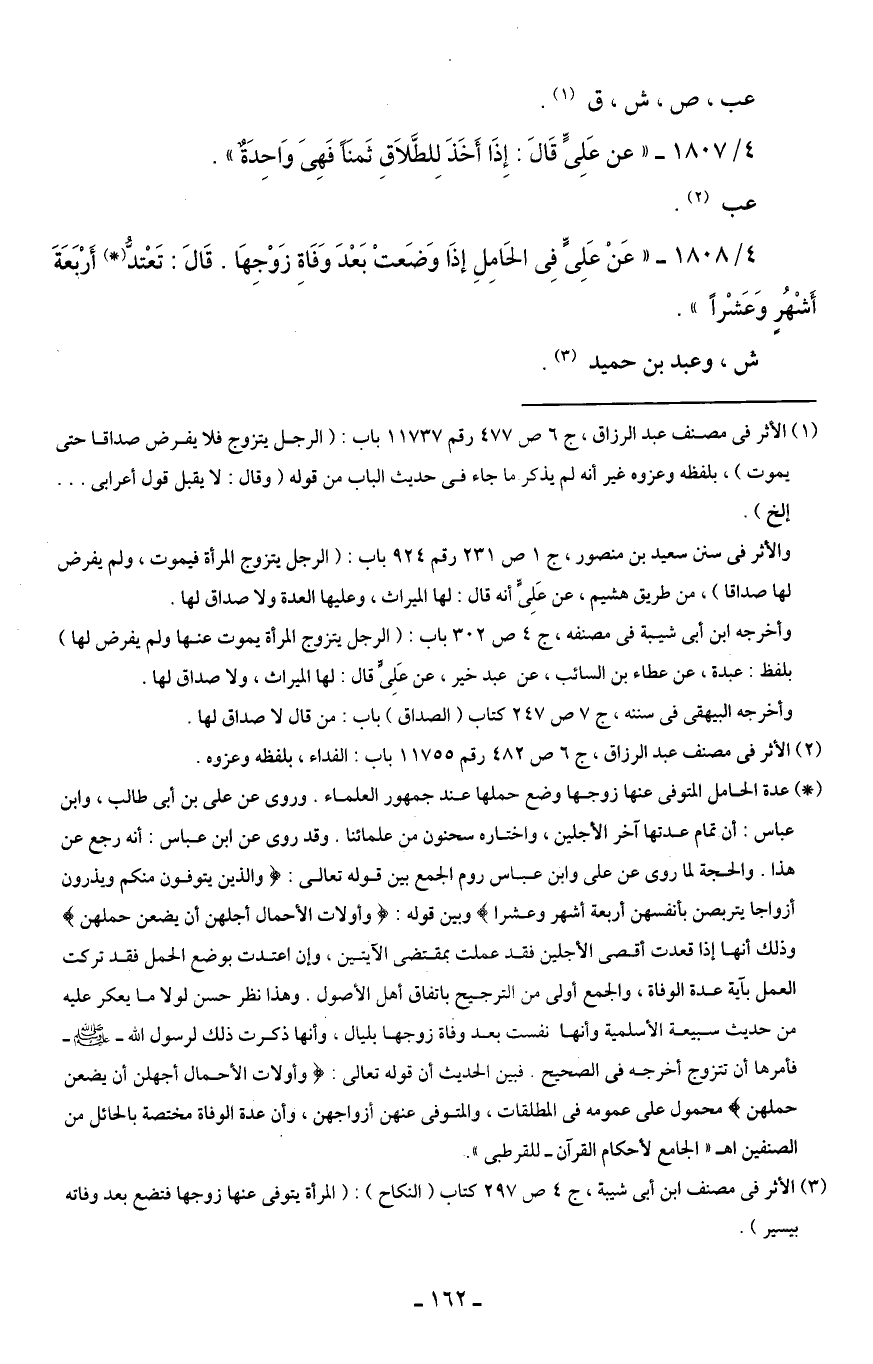 عب ، ص ، ش ، ق (١) .
٤/ ١٨٠٧ ـ « عن عَلِىٍّ قَالَ : إِذَا أَخَذَ لِلطَّلَاقِ ثَمنَاً فَهِىَ وَاحِدَةٌ » .
عب (٢) .
٤/ ١٨٠٨ ـ « عَنْ عَلِىٍّ فِى الحَامِلِ إِذَا وَضَعَتْ بَعْدَ وَفَاةِ زَوْجِهَا . قَالَ : تَعْتدُّ(*) أَرْبَعَةَ
أَشْهُرٍ وَعَشْراً » .
ش ، وعبد بن حميد (٣) .
(١) الأثر فى مصنف عبد الرزاق ، ج ٦ ص ٤٧٧ رقم ١١٧٣٧ باب : ( الرجل يتزوج فلا يفرض صداقا حتى
يموت ) ، بلفظه وعزوه غير أنه لم يذكر ما جاء فى حديث الباب من قوله ( وقال : لا يقبل قول أعرابى . . .
إلخ ) .
والأثر فى سنن سعيد بن منصور ، ج ١ ص ٢٣١ رقم ٩٢٤ باب : ( الرجل يتزوج المرأة فيموت ، ولم يفرض
لها صداقا ) ، من طريق هشيم ، عن عَلِىٍّ أنه قال : لها الميراث ، وعليها العدة ولا صداق لها .
وأخرجه ابن أبى شيبة فى مصنفه ، ج ٤ ص ٣٠٢ باب : ( الرجل يتزوج المرأة يموت عنها ولم يفرض لها )
بلفظ : عبدة ، عن عطاء بن السائب ، عن عبد خير ، عن عَلِىٍّ قال : لها الميراث ، ولا صداق لها .
وأخرجه البيهقى فى سننه ، ج ٧ ص ٢٤٧ كتاب ( الصداق ) باب : من قال لا صداق لها .
(٢) الأثر فى مصنف عبد الرزاق ، ج ٦ ص ٤٨٢ رقم ١١٧٥٥ باب : الفداء ، بلفظه وعزوه .
(*) عدة الحامل المتوفى عنها زوجها وضع حملها عند جمهور العلماء . وروى عن على بن أبى طالب ، وابن
عباس : أن تمام عدتها آخر الأجلين ، واختاره سحنون من علمائنا . وقد روى عن ابن عباس : أنه رجع عن
هذا . والحجة لما روى عن على وابن عباس روم الجمع بين قوله تعالى : ﴿ والذين يتوفون منكم ويذرون
أزواجا يتربصن بأنفسهن أربعة أشهر وعشرا ﴾ وبين قوله : ﴿ وأولات الأحمال أجلهن أن يضعن حملهن ﴾
وذلك أنها إذا قعدت أقصى الأجلين فقد عملت بمقتضى الآيتين ، وإن اعتدت بوضع الحمل فقد تركت
العمل بآية عدة الوفاة ، والجمع أولى من الترجيح باتفاق أهل الأصول . وهذا نظر حسن لولا ما يعكر عليه
من حديث سبيعة الأسلمية وأنها نفست بعد وفاة زوجها بليال ، وأنها ذكرت ذلك لرسول الله ـ ﷺ ـ
فأمرها أن تتزوج أخرجه فى الصحيح . فبين الحديث أن قوله تعالى : ﴿ وأولات الأحمال أجهلن أن يضعن
حملهن ﴾ محمول على عمومه فى المطلقات ، والمتوفى عنهن أزواجهن ، وأن عدة الوفاة مختصة بالحائل من
الصنفين اهـ « الجامع لأحكام القرآن ـ للقرطبى ».
(٣) الأثر فى مصنف ابن أبى شيبة ، ج ٤ ص ٢٩٧ كتاب ( النكاح ) : ( المرأة يتوفى عنها زوجها فتضع بعد وفاته
بيسير ) .
ـ ١٦٢ ـ